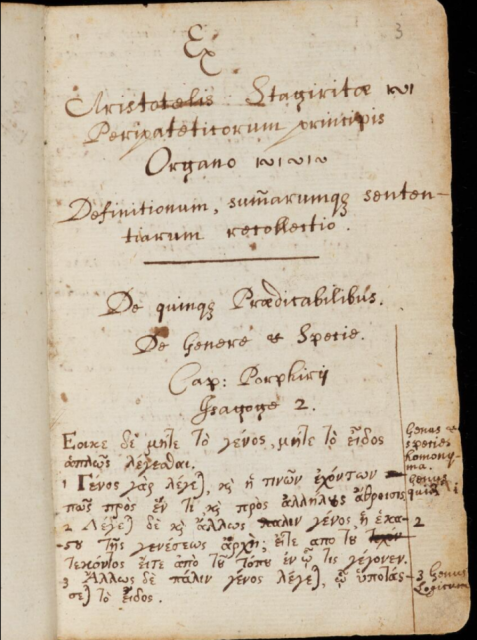 3
Ex
Aristotelis Stagiritæ
Peripateticorum principis
Organo
Definitionum, sum̃arumqꝫ senten-
tiarum recollectio.
De quinqꝫ Prædicabilibús.
De Genere et Specie.
Cap: Porphirij
Isagoge 2.
Εοικε δὲ μήτε τὸ γένος, μήτε τὸ εἶδος
ἁπλῶς λέγεσθαι.
1 Γένος γὰρ λέγε), ϗ ἡ τινῶν ἐχόντων
πῶς πρὸς ἕν τι, ϗ πρὸς ἀλλήλȣς ἄθροισις
2 Λέγε) δὲ ϗ ἄλλως πάλιν γένος, ἡ ἑκά-
ϛȣ τῆς γενέσεως ἀρχὴ; εἴτε απο τȣ
τεκόντος εἴτε ἀπὸ τȣ͂ τόπȣ ἐν ᾧ τις γέγονεν.
3 Ἄλλως δὲ πάλιν γένος λέγε), ᾧ ὑποτάσ-
σε) τὸ εἶδος.
Genus et
species
homony-
ma.
Genus
quid
2
3 Genus
Logicum